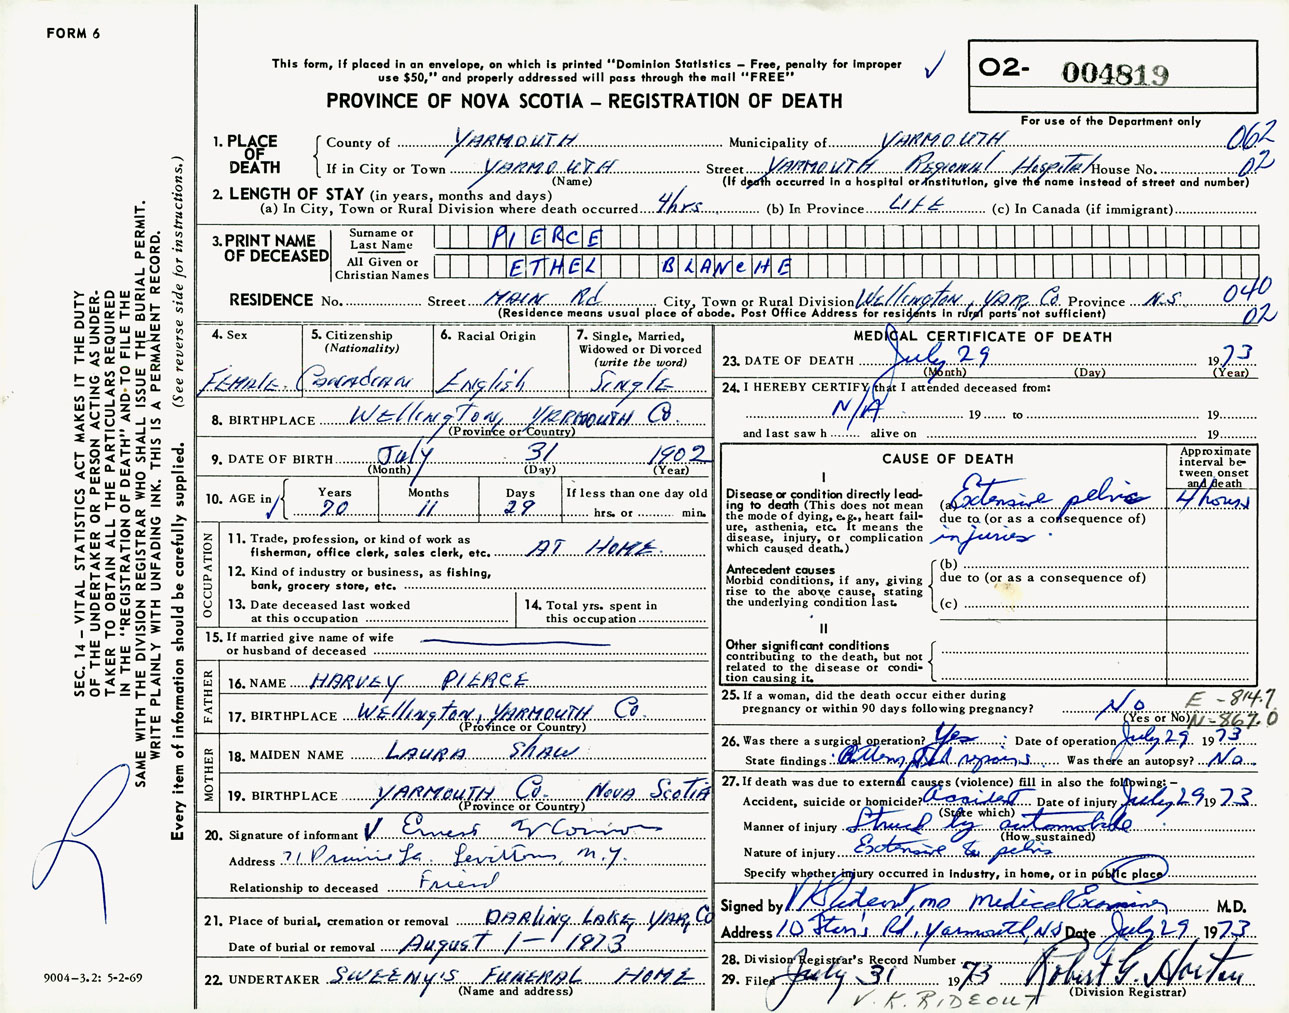 FORM 6
This form, if placed in an envelope, on which is printed "Dominion Statistics – Free, penalty for improper
use $50," and properly addressed will pass through the mail "FREE"
PROVINCE OF NOVA SCOTIA – REGISTRATION OF DEATH
O2- 004819
For use of the Department only
1. PLACE OF DEATH
County of YARMOUTH Municipality of YARMOUTH 062
If in City or Town YARMOUTH Street YARMOUTH REGIONAL Hospital House No. 02
(Name) (If death occurred in a hospital or institution, give the name instead of street and number)
2. LENGTH OF STAY (in years, months and days)
(a) In City, Town or Rural Division where death occurred 4hrs (b) In Province LIFE (c) In Canada (if immigrant)
3. PRINT NAME OF DECEASED
Surname or Last Name PIERCE
All Given or Christian Names ETHEL BLANCHE
RESIDENCE No. Street MAIN Rd City, Town or Rural Division Wellington, YAR. Co Province N.S. 040
(Residence means usual place of abode. Post Office Address for residents in rural parts not sufficient) 02
4. Sex
FEMALE.
5. Citizenship
(Nationality)
Canadian
6. Racial Origin
English
7. Single, Married,
Widowed or Divorced
(write the word)
SINGLE
8. BIRTHPLACE Wellington, YARMOUTH Co.
(Province or Country)
9. DATE OF BIRTH July 31 1902
(Month) (Day) (Year)
10. AGE in
Years 70
Months 11
Days 29
If less than one day old
hrs. or min.
OCCUPATION
11. Trade, profession, or kind of work as
fisherman, office clerk, sales clerk, etc. AT HOME.
12. Kind of industry or business, as fishing,
bank, grocery store, etc.
13. Date deceased last worked
at this occupation
14. Total yrs. spent in
this occupation
15. If married give name of wife
or husband of deceased
FATHER
16. NAME HARVEY PIERCE
17. BIRTHPLACE Wellington, YARMOUTH Co.
(Province or Country)
MOTHER
18. MAIDEN NAME LAURA SHAW
19. BIRTHPLACE YARMOUTH Co. NOVA SCOTIA
(Province or Country)
20. Signature of informant Ernest W
Address 71 Prairie La. Levittown, N.Y.
Relationship to deceased Friend
21. Place of burial, cremation or removal DARLING LAKE, YAR, CO
Date of burial or removal August 1 – 1973
22. UNDERTAKER SWEENY'S FUNERAL HOME
(Name and address)
MEDICAL CERTIFICATE OF DEATH
23. DATE OF DEATH July 29 1973
(Month) (Day) (Year)
24. I HEREBY CERTIFY that I attended deceased from:
N/A 19 to 19
and last saw h alive on 19
CAUSE OF DEATH
Approximate
interval be-
tween onset
and death
I
Disease or condition directly lead-
ing to death (This does not mean
the mode of dying, e.g., heart fail-
ure, asthenia, etc. It means the
disease, injury, or complication
which caused death.)
(a) Extensive pelvic 4 hours
due to (or as a consequence of)
injuries.
Antecedent causes
Morbid conditions, if any, giving
rise to the above cause, stating
the underlying condition last.
(b)
due to (or as a consequence of)
(c)
II
Other significant conditions
contributing to the death, but not
related to the disease or condi-
tion causing it.
25. If a woman, did the death occur either during
pregnancy or within 90 days following pregnancy? No
(Yes or No)
E-814.7
N-867.0
26. Was there a surgical operation? Yes Date of operation July 29 1973
State findings Attempted repairs Was there an autopsy? No
27. If death was due to external causes (violence) fill in also the following:–
Accident, suicide or homicide? Accident Date of injury July 29 1973
(State which)
Manner of injury Struck by automobile
(How sustained)
Nature of injury Extensive to pelvis
Specify whether injury occurred in industry, in home, or in public place
Signed by V K Rideout, MD Medical Examiner M.D.
Address 10 Rd. Yarmouth, NS Date July 29 1973
28. Division Registrar's Record Number
29. Filed July 31 1973 Robert G. Horton
(Division Registrar)
V. K. RIDEOUT
SEC. 14 – VITAL STATISTICS ACT MAKES IT THE DUTY
OF THE UNDERTAKER OR PERSON ACTING AS UNDER-
TAKER TO OBTAIN ALL THE PARTICULARS REQUIRED
IN THE "REGISTRATION OF DEATH" AND TO FILE THE
SAME WITH THE DIVISION REGISTRAR WHO SHALL ISSUE THE BURIAL PERMIT.
WRITE PLAINLY WITH UNFADING INK. THIS IS A PERMANENT RECORD.
Every item of information should be carefully supplied. (See reverse side for instructions.)
9004–3.2: 5-2-69